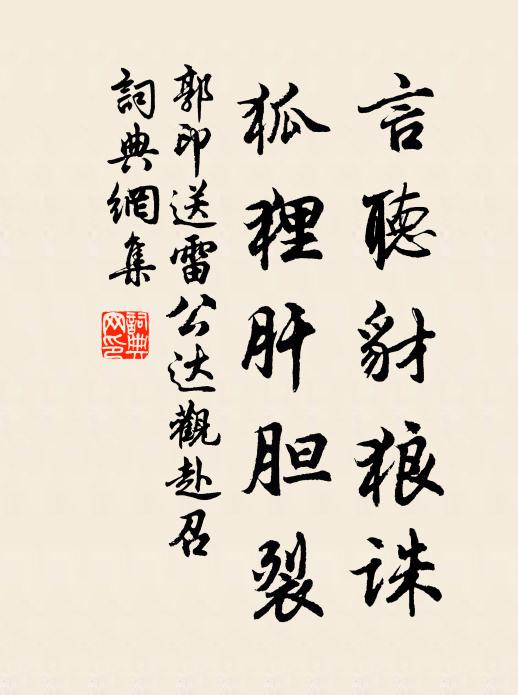 言聽豺狼诛
狐狸肝胆裂
郭印送雷公达觀赴召
詞典網集
詞典网印